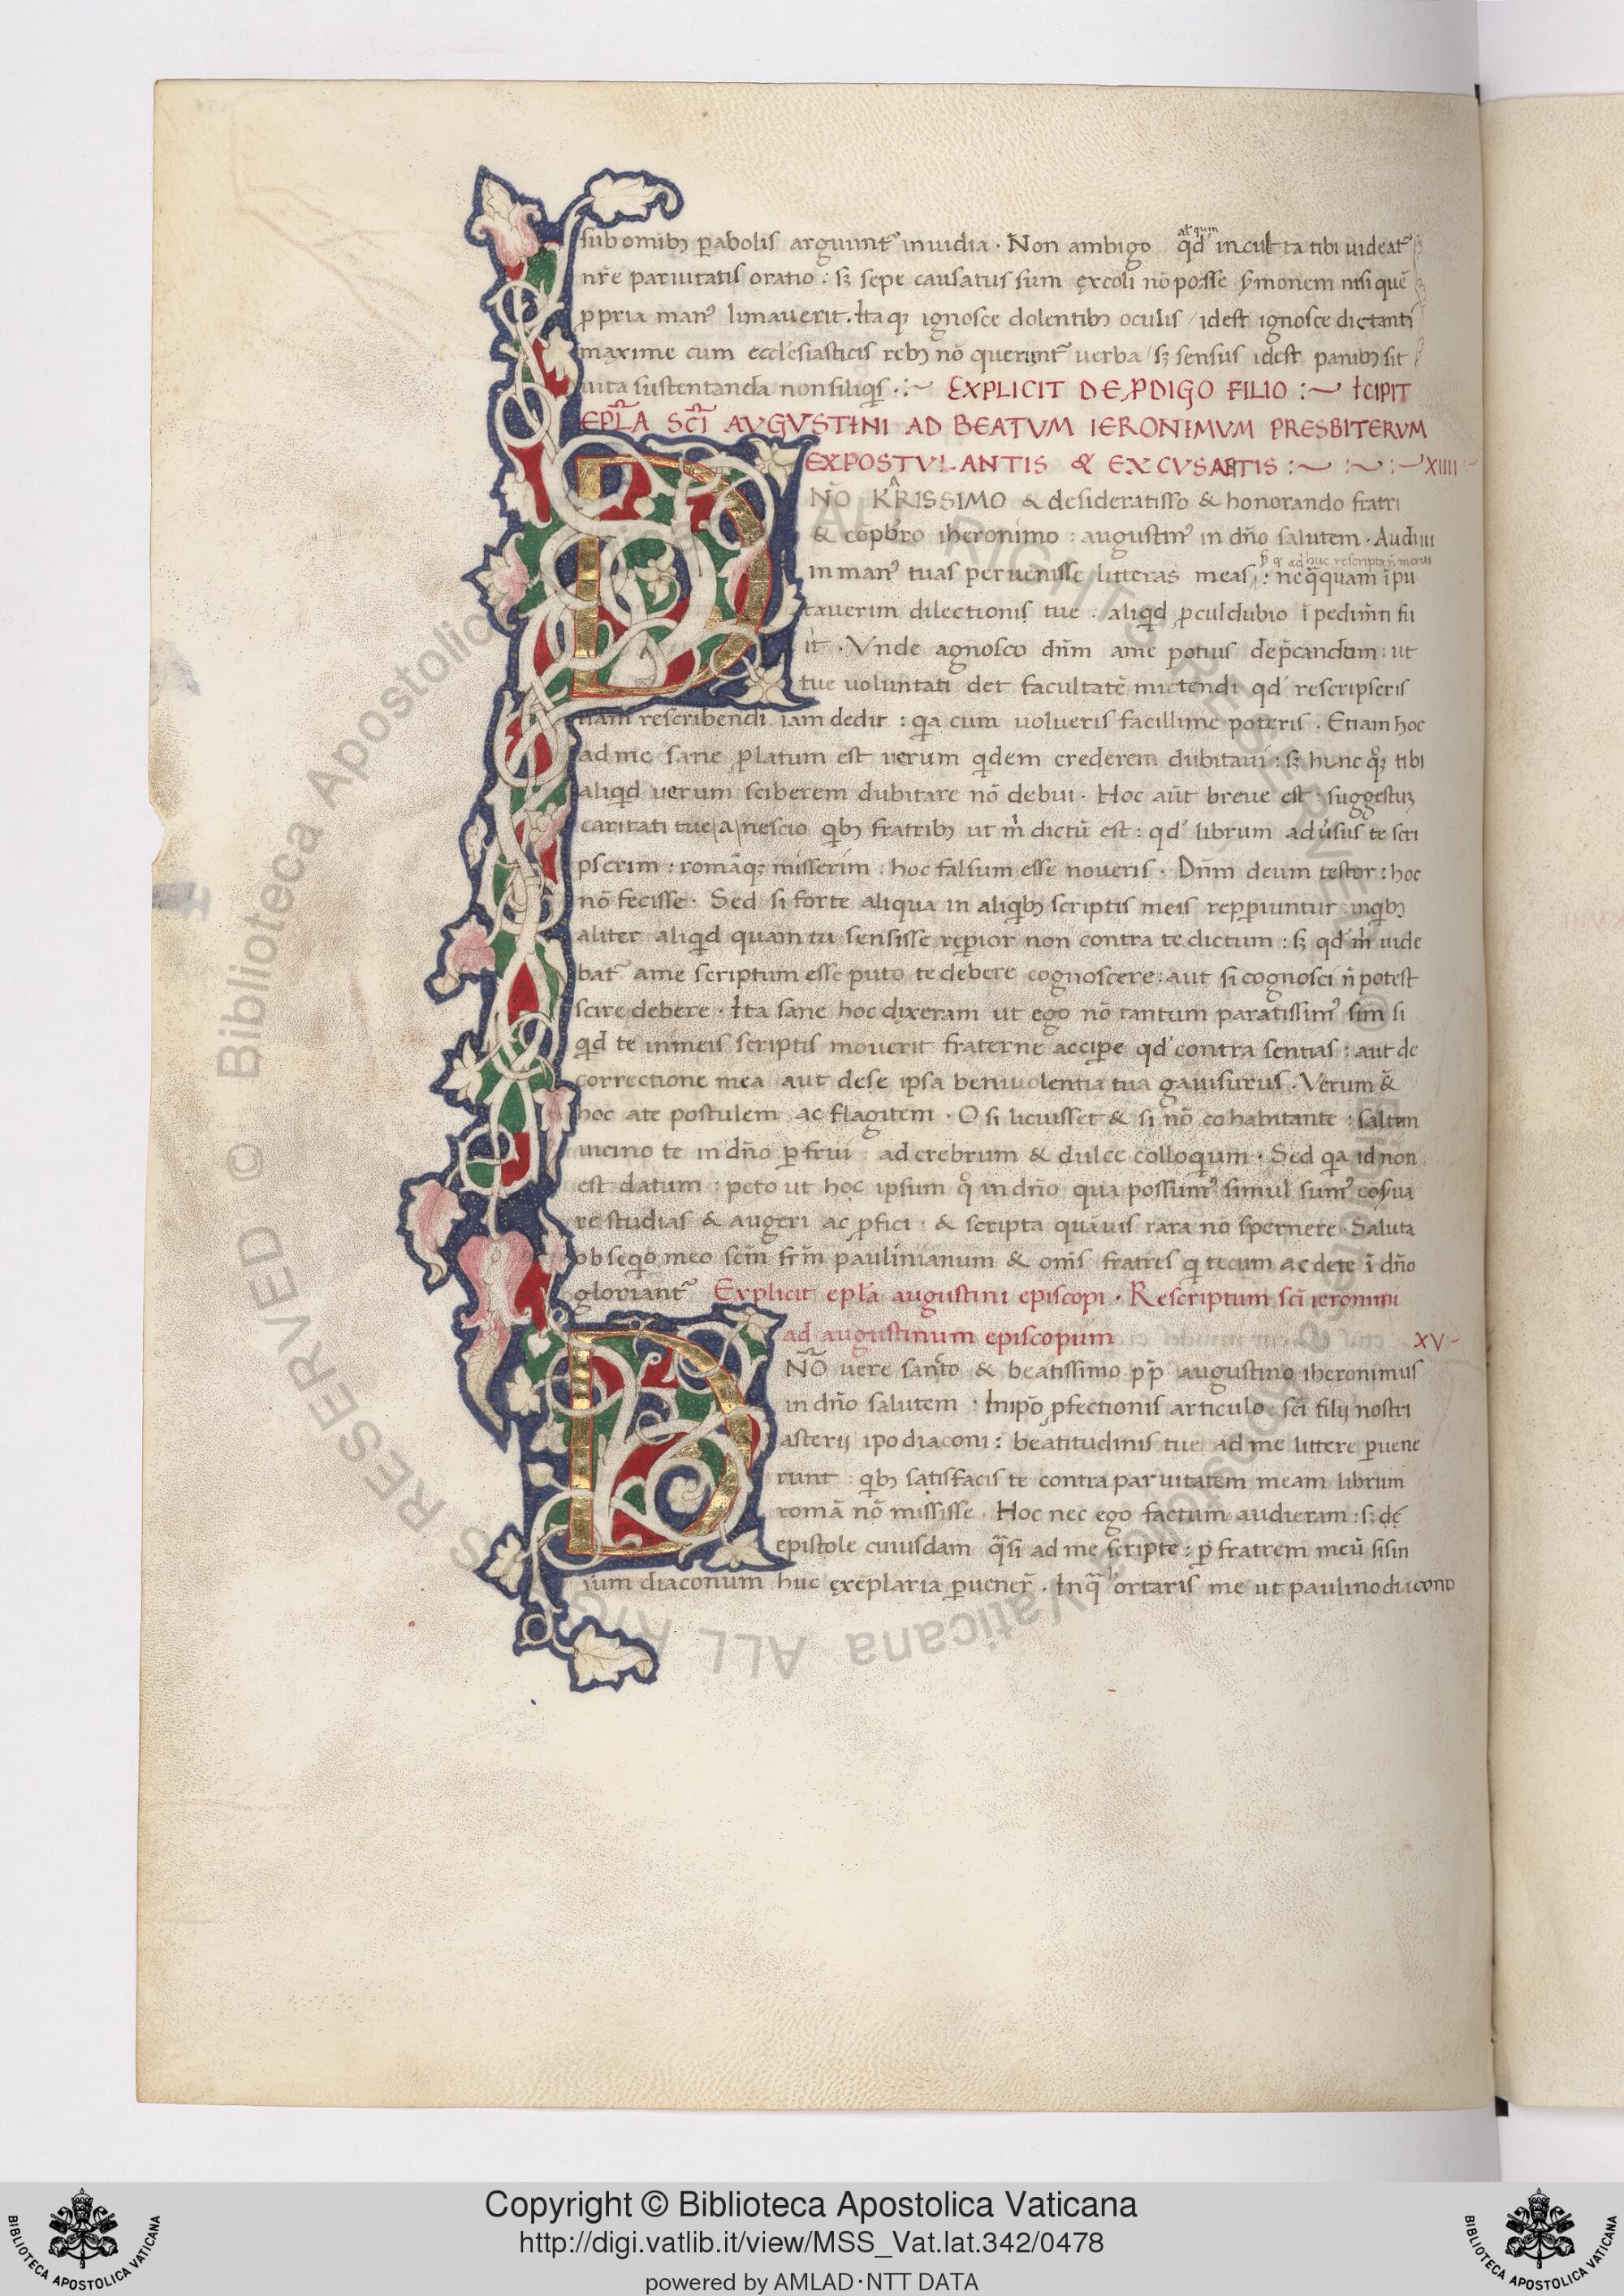 sub omĩbȝ ꝑabolis arguunt᷑ inuidia · Non ambigo qd̛ inculta tibi uideat᷑
al̛ quin
nr̃e paruitatis oratio : sȝ sepe causatus sum ęxcoli nõ posse s̃monem nisi quẽ
ꝓpria manꝰ limauerit . Itaqȝ ignosce dolentibȝ oculis / idest ignosce dictanti
maxime cum ecclesiasticis rebȝ nõ querunt᷑ verba / sȝ sensus idest panibȝ sit
uita sustentanda non siliqs . :~ EXPLICIT DE PDIGO FILIO :~ ICIPIT
EPL̃A SC̃I AVGVSTINI AD BEATVM IERONIMVM PRESBITERVM
EXPOSTVLANTIS & EXCVSANTIS :~ :~ :~ XIIII
NÕ KR̃ISSIMO & desideratisso & honorando fratri
& cõpb̃ro iheronimo : augustinꝰ in dño salutem · Audiui
in manꝰ tuas peruenisse litteras meas : neq̃quam ĩpu
ad huc rescripta ñ merui
tauerim dilectionis tue : aliqd ꝓculdubio ĩpedim̃ti fu
it · Vnde agnosco dñm ame potius dep̃candum : ut
tue voluntati det facultatẽ mictendi qd̛ rescripseris
nam rescribendi iam dedit : qa cum volueris facillime poteris . Etiam hoc
ad me sane ꝑlatum est verum qdem crederem dubitaui : sȝ hunc qͦqȝ tibi
aliqd verum sciberem dubitare nõ debui · Hoc aũt breue est : suggestuȝ
caritati tue | a | nescio qbȝ fratribȝ ut m̃ dictũ est : qd̛ librum adũsus te scri
pserim : romãqȝ misserim : hoc falsum esse noueris · Dñm deum testor : hoc
nõ fecisse · Sed si forte aliqua in aliqbȝ scriptis meis reꝑpiuntur inqbȝ
aliter aliqd quam tu sensisse reꝑior non contra te dictum : sȝ qd̛ m̃ uide
bat᷑ ame scriptum esse puto te debere cognoscere : aut si cognosci ñ potest
scire debere · Ita sane hoc dixeram ut ego nõ tantum paratissimꝰ sim si
qd te inmeis scriptis mouerit fraterne accipe qd̛ contra sentias : aut de
correctione mea aut dese ipsa beniuolentia tua gauisurus · Verum &
hoc ate postulem ac flagitem · O si licuisset & si nõ cohabitante : saltem
uicino te in dño ꝑfrui : ad crebrum & dulce colloqium · Sed qa id non
est datum : peto ut hoc ipsum qͦ in dño qua possumꝰ simul sumꝰ cõs̃ua
re studias & augeri ac ꝑfici : & scripta quãuis rara nõ spernere · Saluta
obseqio meo sc̃m frm̃ paulinianum & om̃s fratres q tecum ac dete ĩ dño
gloriant᷑ Explicit epl̃a augustini episcopi · Rescriptum sc̃i ieronimi
ad augustinum episcopum XV
NÕ vere sancto & beatissimo pp̃ augustino iheronimus
in dño salutem : Inip̃o ꝓfectionis articulo : sc̃i filij nostri
asterij ipodiaconi : beatitudinis tue ad me littere ꝑuene
runt : qbȝ satisfacis te contra paruitatem meam librum
romã nõ mississe . Hoc nec ego factum audieram : sȝ dę
epistole cuiusdam q̃si ad me scripte : ꝑ fratrem meũ sisin
ium diaconum huc ęxẽplaria ꝑuener̃ · Inq̃ ortaris me ut paulinodiacono
© Biblioteca Apostolica Vaticana ALL RIGHTS RESERVED
Copyright © Biblioteca Apostolica Vaticana
http://digi.vatlib.it/view/MSS_Vat.lat.342/0478
powered by AMLAD·NTT DATA
BIBLIOTECA APOSTOLICA VATICANA
BIBLIOTECA APOSTOLICA VATICANA